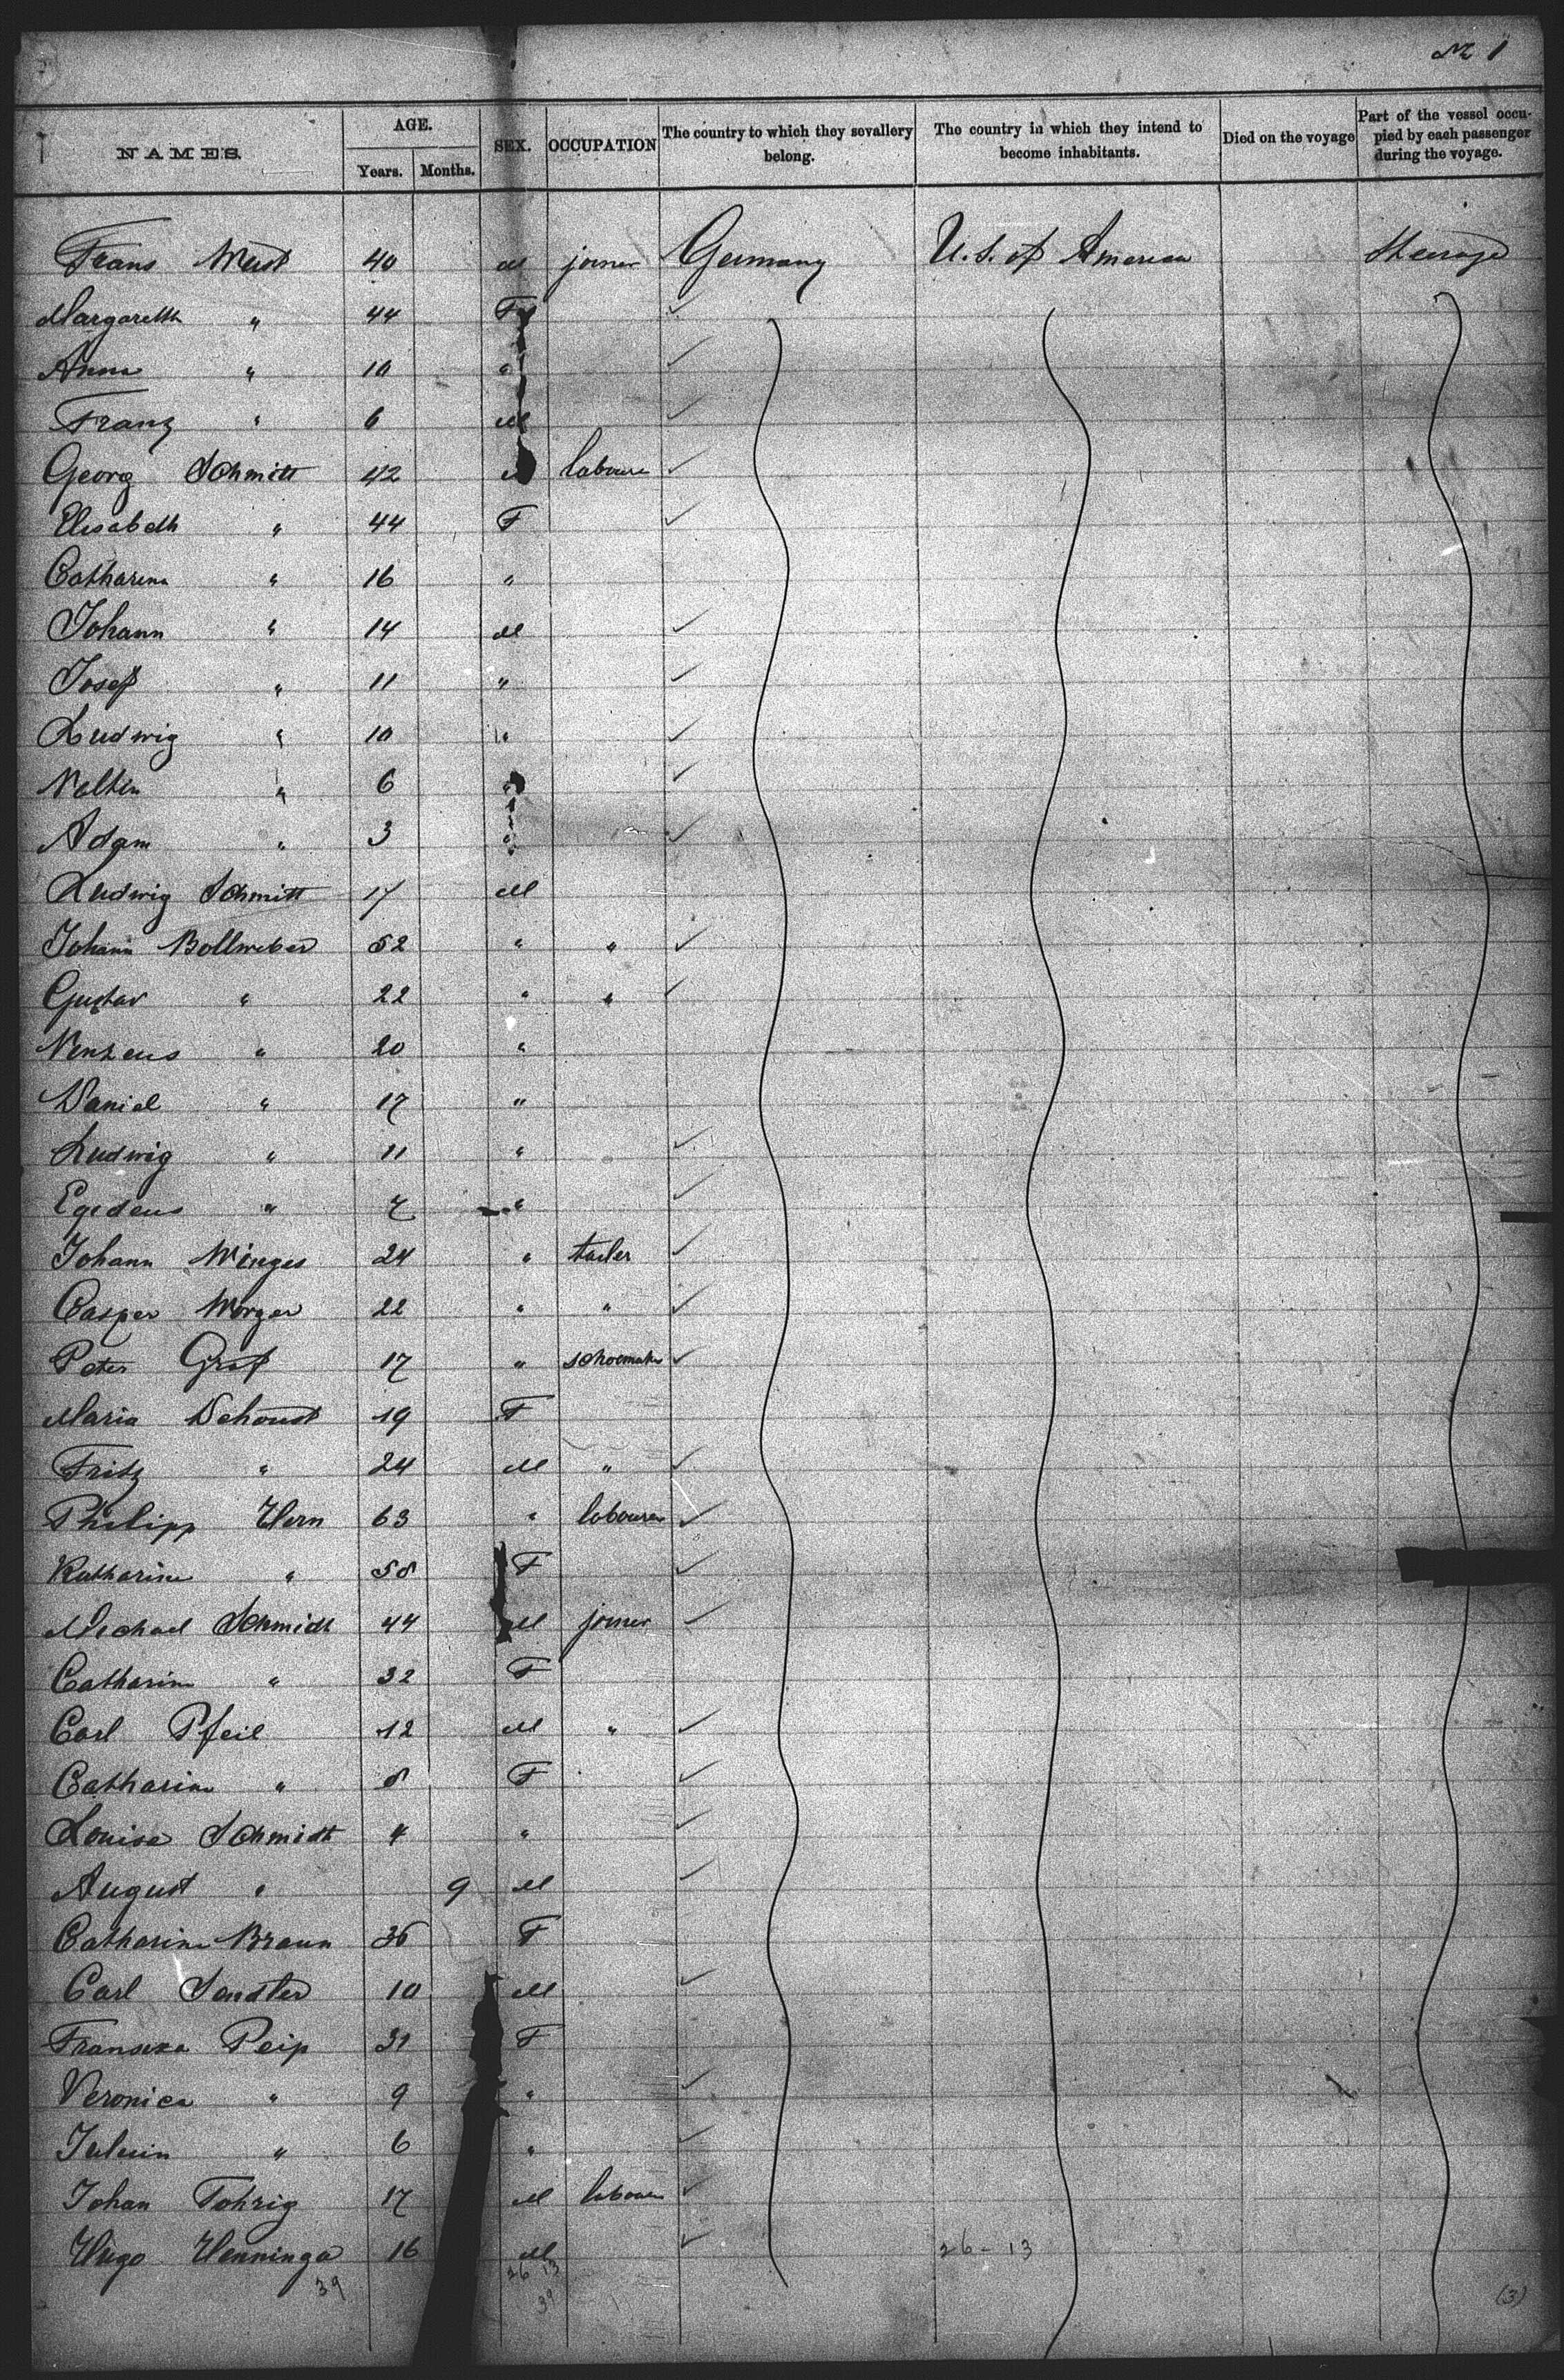 № 1
NAMES. AGE. Years. Months. SEX. OCCUPATION The country to which they sevallery belong. The country in which they intend to become inhabitants. Died on the voyage Part of the vessel occupied by each passenger during the voyage.
Frans 40 M joiner Germany U.S. of America Steerage
Margareth " 44 F
Anna " 10 "
Franz " 6 M
Georg Schmitt 42 M labourer
Elisabeth " 44 F
Catharina " 16 "
Johann " 14 M
Josef " 11 "
Ludwig " 10 "
" 6 "
Adam " 3 "
Ludwig Schmitt 17 M
Johann Bollweber 52 " "
Gustav " 22 " "
" 20 "
Daniel " 17 "
Ludwig " 11 "
Egideus " 7 "
Johann Winges 24 " tailer
Casper 22 " "
Peter Graf 17 " schoemaker
Maria 19 F
Fritz " 24 M "
Philipp Hern 63 " labourer
Katharine " 58 F
Michael Schmidt 44 M joiner
Catharine " 32 F
Carl Pfeil 12 M "
Catharine " 8 F
Louise Schmidt 4 "
August " 9 M
Catharine Braun 36 F
Carl Sandler 10 M
Franseka Peip 31 F
Veronica " 9 "
" 6 "
Johan Tohrig 17 M labourer
Hugo Henninga 16 M 26-13
39 26 13
39 (3)